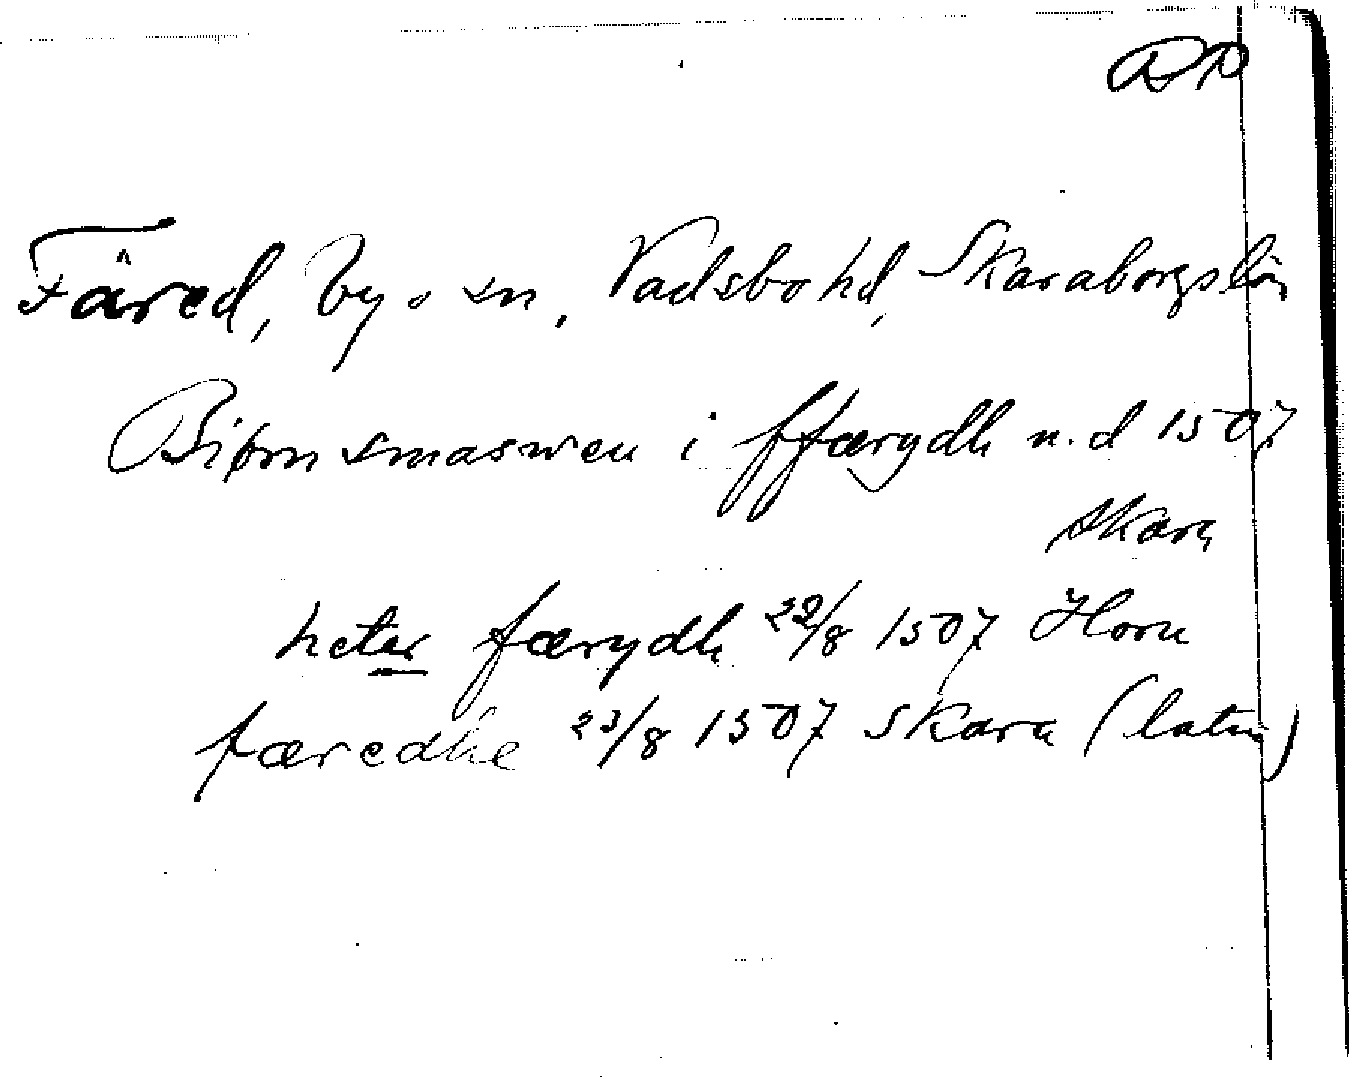 DR
Färed, by o sn, Vadsbo hd, Skaraborgs län
Biørn smaswen i ffærydh u.d 1507
Skara
heter færydh 22/8 1507 Horn
færedhe 23/8 1507 Skara (latin)